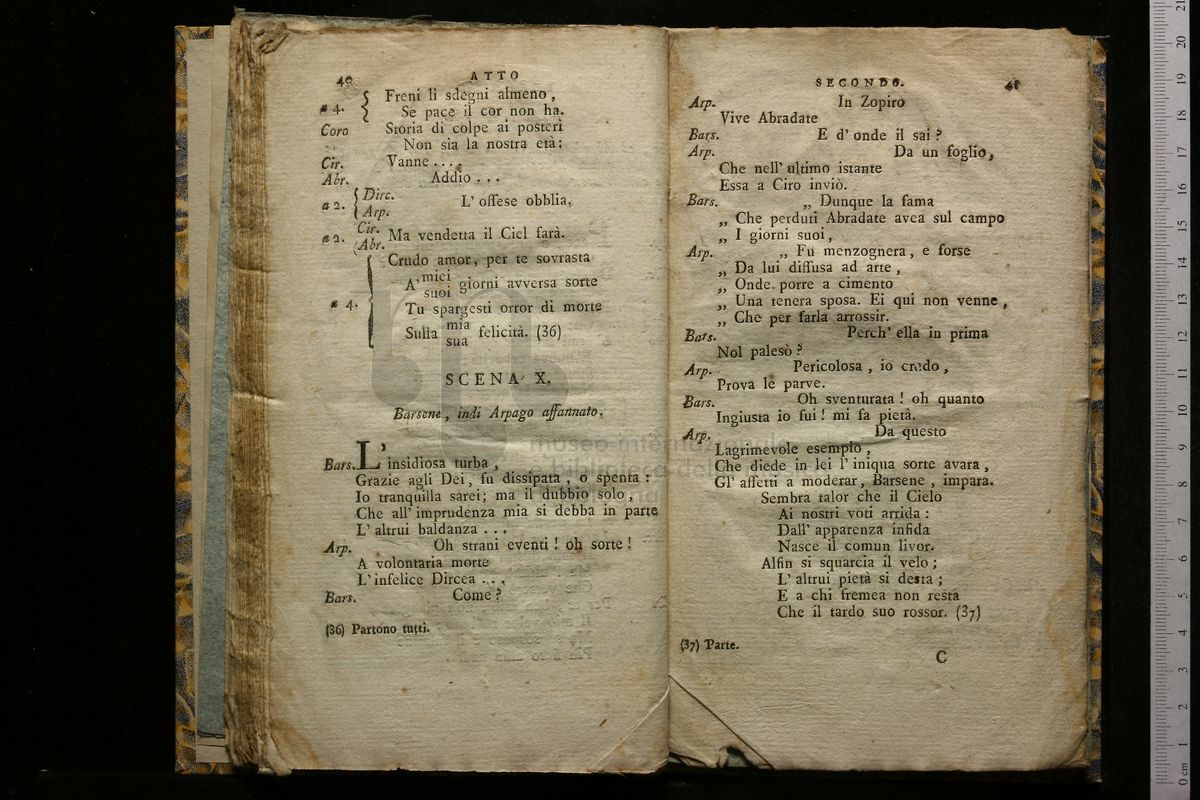 40 ATTO
a 4. { Freni li sdegni almeno,
Se pace il cor non ha.
Coro Storia di colpe ai posteri
Non sia la nostra età:
Cir. Vanne....
Abr. Addio...
a 2. { Dirc. Arp. L'offese obblia,
a 2. ( Cir. Abr. Ma vendetta il Ciel farà.
a 4. { Crudo amor, per te sovrasta
A' miei suoi giorni avversa sorte
Tu spargesti orror di morte
Sulla mia sua felicità. (36)
SCENA X.
Barsene, indi Arpago affannato.
Bars. L'insidiosa turba,
Grazie agli Dei, fu dissipata, o spenta:
Io tranquilla sarei; ma il dubbio solo,
Che all'imprudenza mia si debba in parte
L'altrui baldanza...
Arp. Oh strani eventi! oh sorte!
A volontaria morte
L'infelice Dircea...
Bars. Come?
(36) Partono tutti.
SECONDO. 41
Arp. In Zopiro
Vive Abradate
Bars. E d'onde il sai?
Arp. Da un foglio,
Che nell'ultimo istante
Essa a Ciro inviò.
Bars. „ Dunque la fama
„ Che perduti Abradate avea sul campo
„ I giorni suoi,
Arp. „ Fu menzognera, e forse
„ Da lui diffusa ad arte,
„ Onde porre a cimento
„ Una tenera sposa. Ei qui non venne,
„ Che per farla arrossir.
Bars. Perch'ella in prima
Nol palesò?
Arp. Pericolosa, io credo,
Prova le parve.
Bars. Oh sventurata! oh quanto
Ingiusta io fui! mi fa pietà.
Arp. Da questo
Lagrimevole esempio,
Che diede in lei l'iniqua sorte avara,
Gl'affetti a moderar, Barsene, impara.
Sembra talor che il Cielo
Ai nostri voti arrida:
Dall'apparenza infida
Nasce il comun livor.
Alfin si squarcia il velo;
L'altrui pietà si desta;
E a chi fremea non resta
Che il tardo suo rossor. (37)
(37) Parte.
C
museo internazionale
e biblioteca della musica